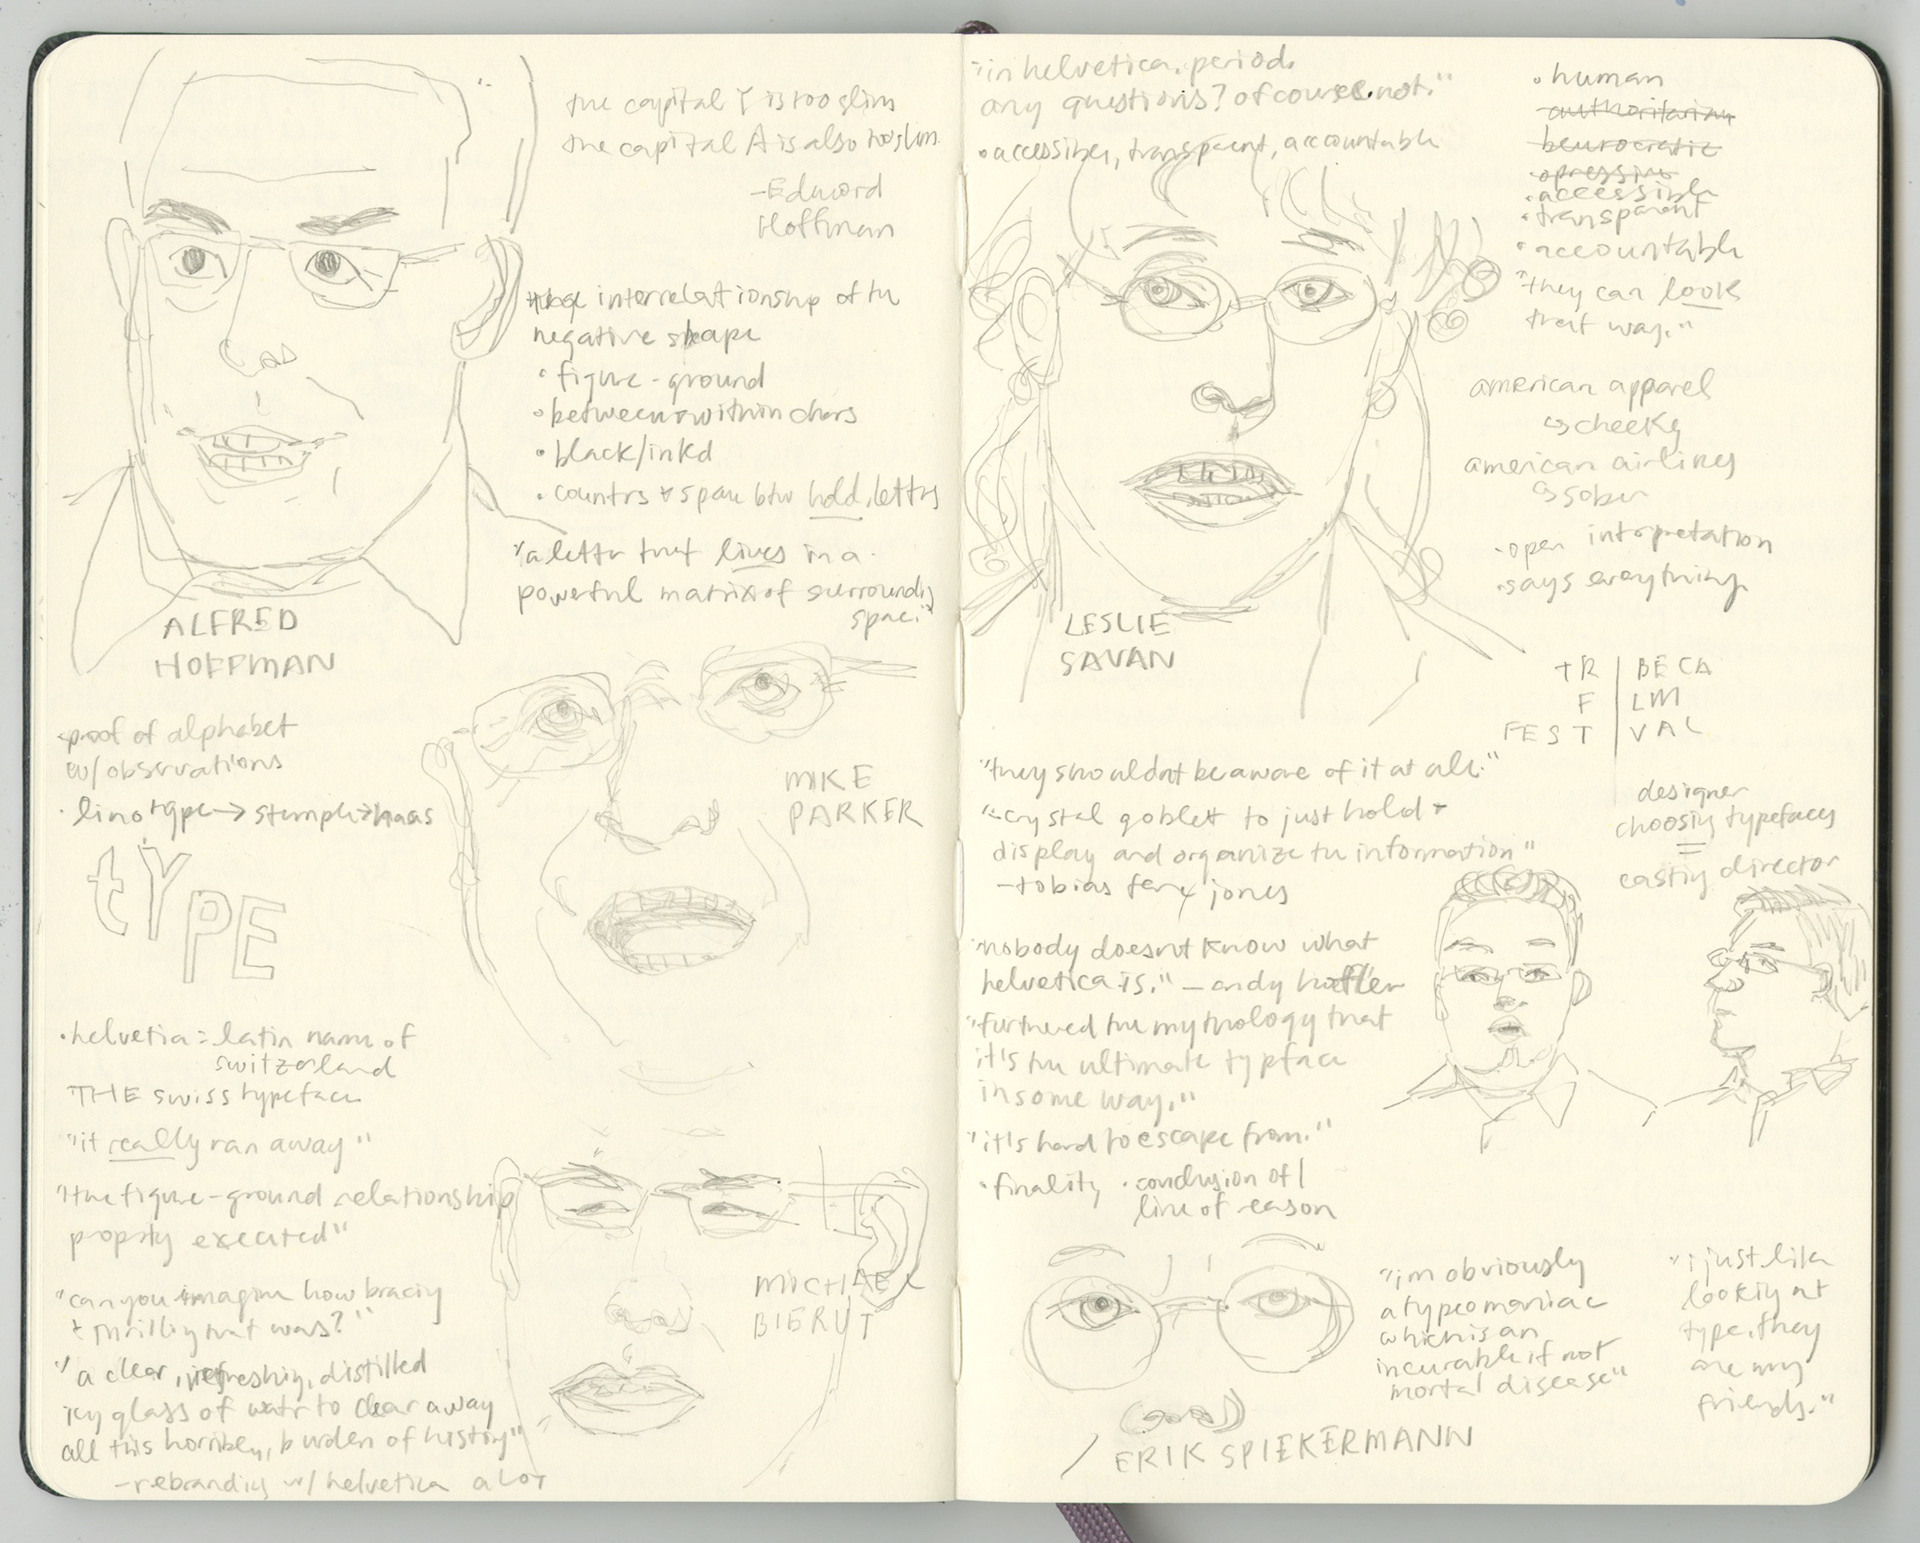 the capital Y is too slim
the capital A is also too slim.
-Edward
Hoffman
the interrelationship of the
negative shape
• figure-ground
• between + within chars
• black/inkd
• countrs + space btw hold, lettrs
"a lettr that lives in a
powerful matrix of surroundig
space."
ALFRED
HOFFMAN
proof of alphabet
w/ observations
• linotype → stemple → haas
tYPE
MIKE
PARKER
• helvetia = latin name of
switzerland
THE swiss typeface
"it really ran away"
"the figure-ground relationship
proprly executed"
"can you imagine how bracig
+ thrillig that was?"
"a clear, refreshig, distilled
icy glass of watr to clear away
all this horrible, burden of history"
-rebrandig w/ helvetica a lot
MICHAEL
BIERUT
"in helvetica. period.
any questions? of course not."
• accessible, transparent, accountable
• human
authoritarian
beurocratic
opressive
• accessible
• transparent
• accountable
"they can look
that way."
american apparel
↳ cheeky
american airlines
↳ sober
• open intrpretation
• says everything
LESLIE
SAVAN
TR | BECA
F | LM
FEST | VAL
"they shouldnt be aware of it at all."
"crystal goblet to just hold +
display and organize the information"
-tobias jones
designer
choosig typefaces
=
castig director
nobody doesnt know what
helvetica is." - andy
"furthered the mythology that
it's the ultimate typface
in some way."
"it's hard to escape from."
• finality • conclusion of
line of reason
"im obviously
a typeomaniac
which is an
incurable if not
mortal disease"
"i just like
lookig at
type. they
are my
friends."
/ ERIK SPIEKERMANN